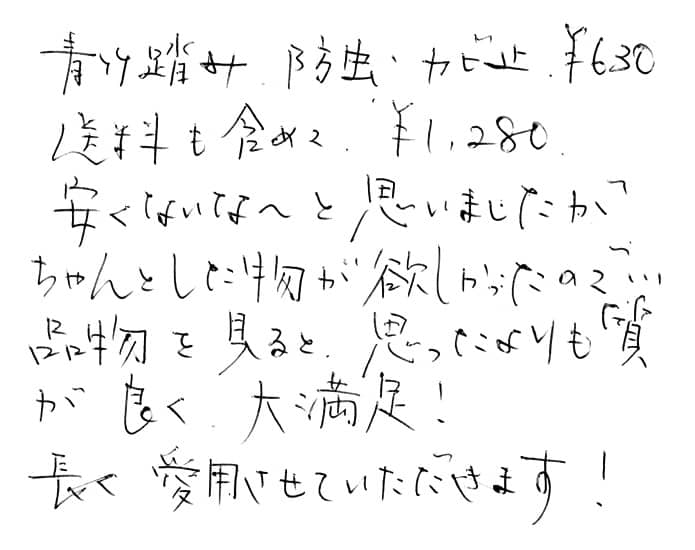 青竹踏み、防虫・カビ止、¥630
送料も含めて、¥1,280.
安くないなへと思いましたが
ちゃんとした物が欲しかったので…
品物を見ると、思ったよりも質
が良く、大満足！
長く愛用させていただきます！